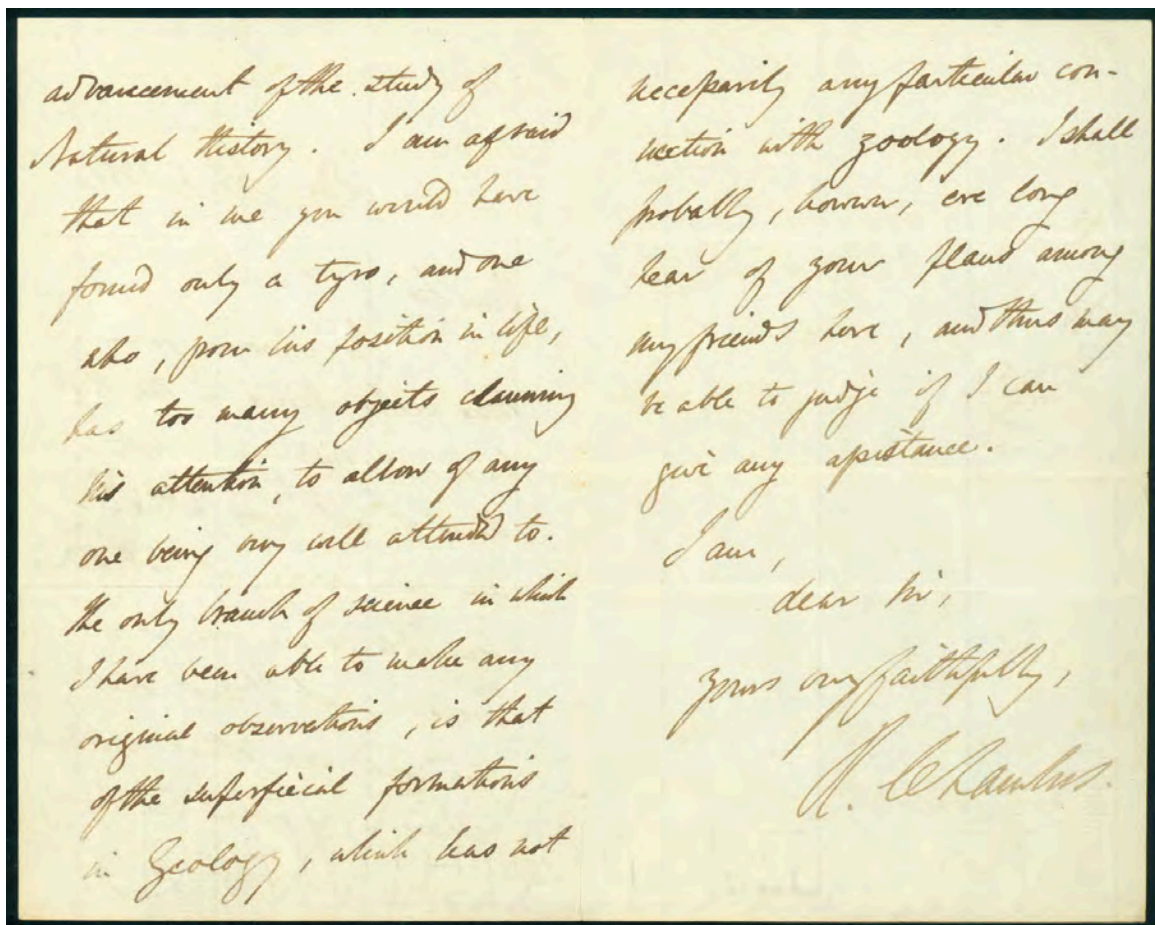 advancement of the study of
Natural History. I am afraid
that in me you would have
found only a tyro, and one
who, from his position in life,
has too many objects claiming
his attention, to allow of any
one being very well attended to.
The only branch of science in which
I have been able to make any
original observations, is that
of the superficial formations
in Geology, which has not
necessarily any particular con-
nection with zoology. I shall
probably, however, ere long
hear of your plans among
my friends here, and thus may
be able to judge if I can
give any assistance.
I am,
dear Sir,
yours very faithfully,
R. Chambers.